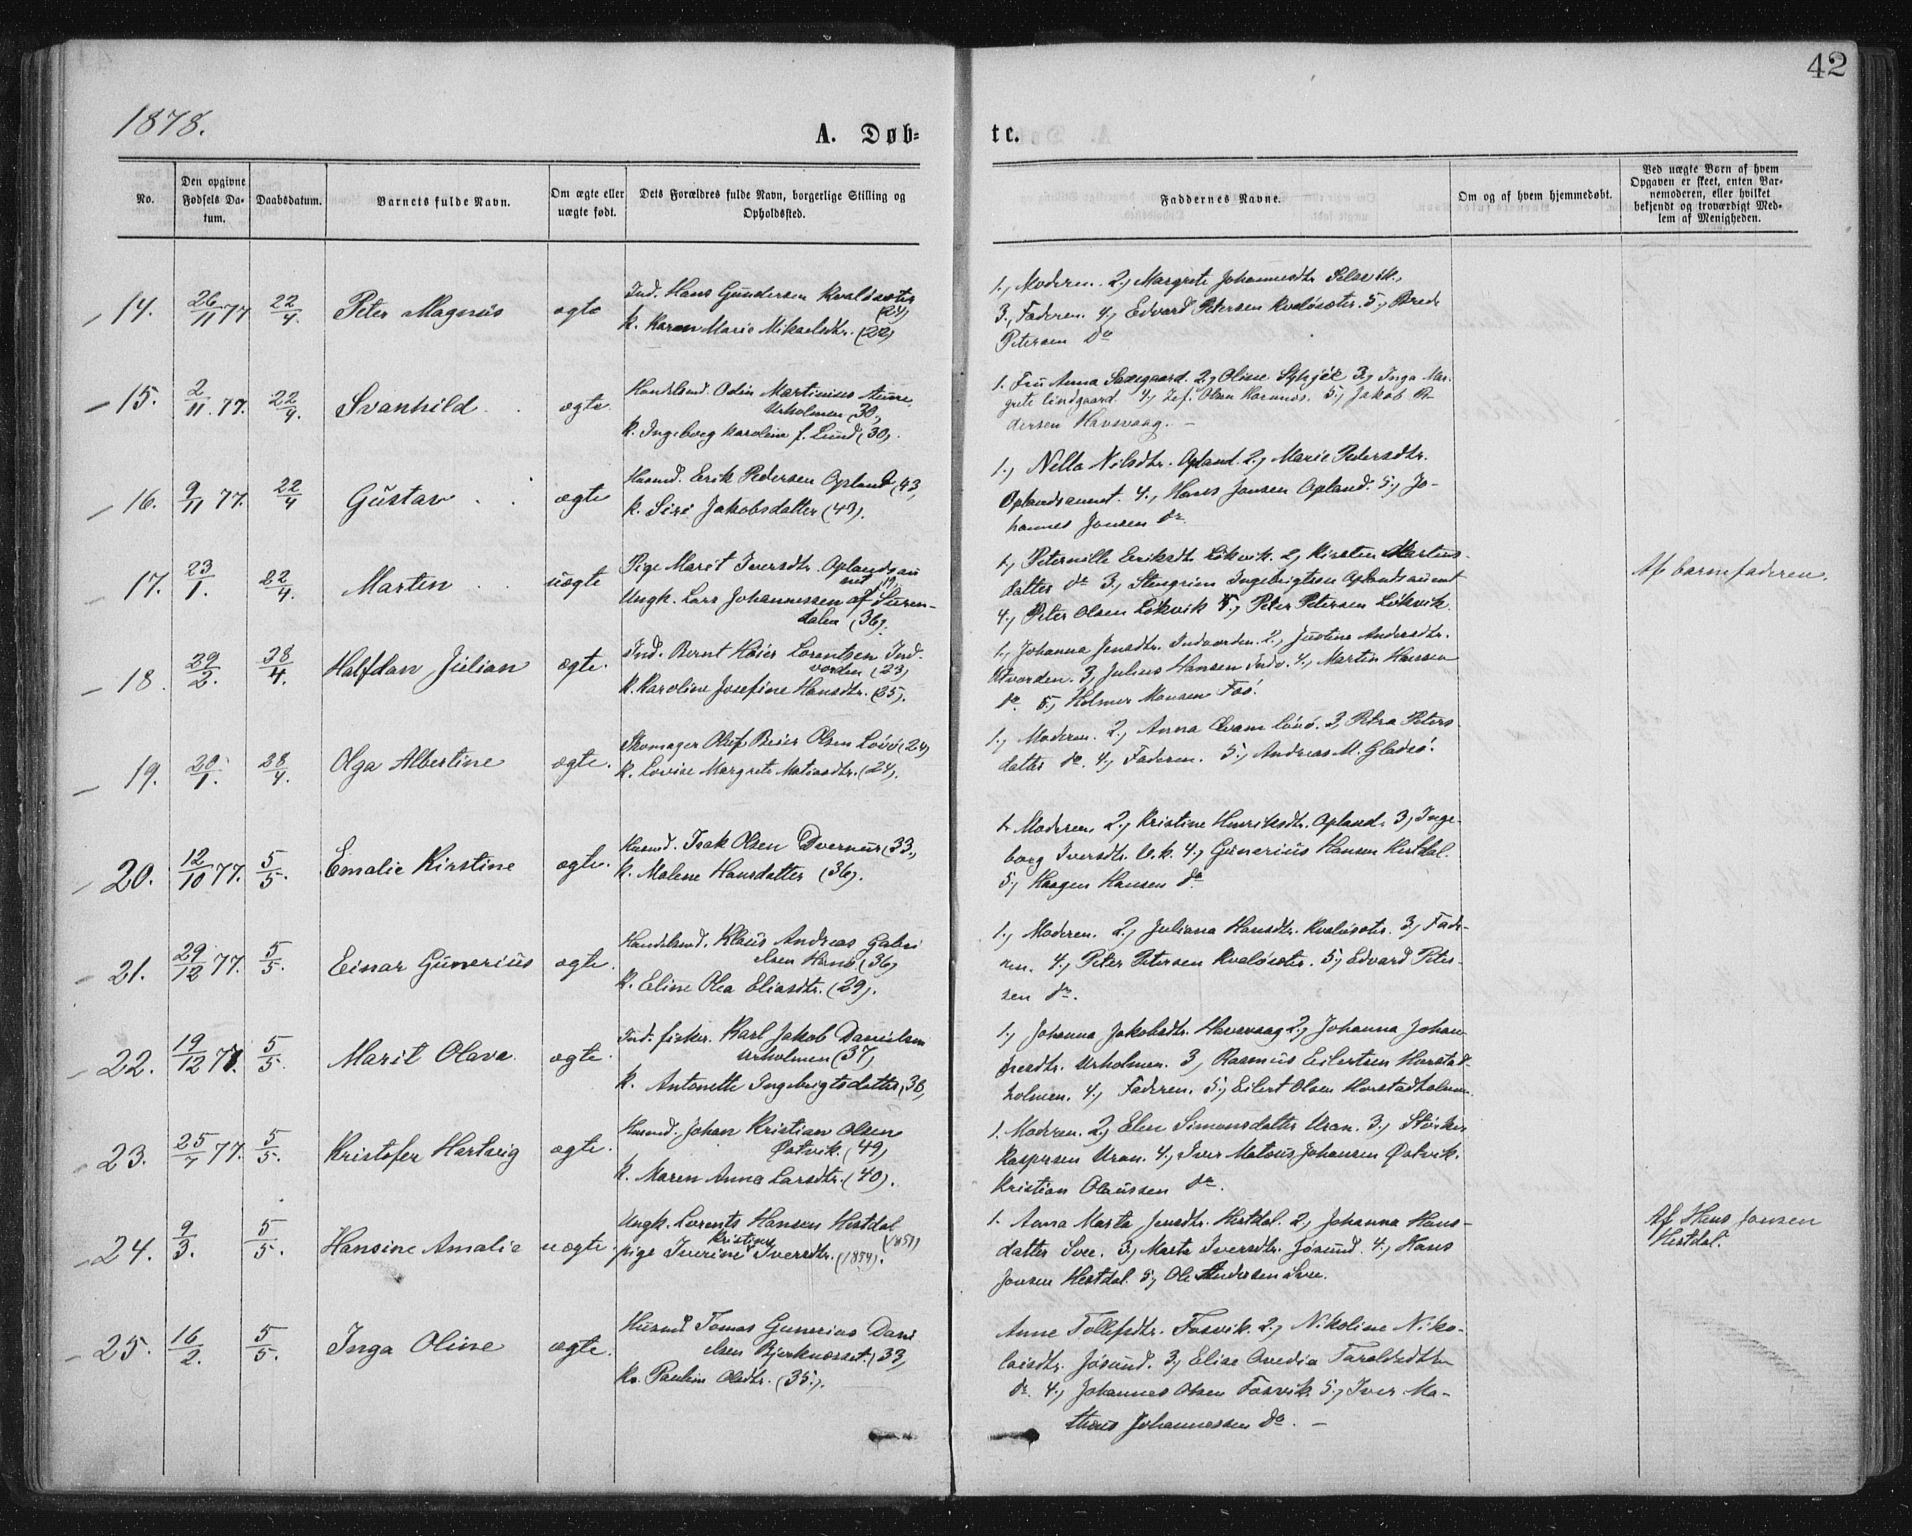 42
1878.
A. Døb-
te.
No.
Den opgivne Fødsels Da-tum.
Daabsdatum.
Barnets fulde Navn.
Om ægte eller uægte født.
Dets Forældres fulde Navn, borgerlige Stilling og Opholdsted.
Faddernes Navne.
Om og af hvem hjemmedøbt.
Ved uægte Børn af hvem Opgaven er skeet, enten Bar-nemoderen, eller hvilket bekjendt og troværdigt Med-lem af Menigheden.
14. 26/11 77 22/4 Peter Magnus ægte
Ind. Hans Gundersen Kvaløsæter (24)
k. Karen Marie Mikaelsdtr. (22)
1, Moderen. 2, Margrete Johannesdtr.
3, Faderen. 4, Edvard Petersen Kvaløsæter. 5,
Petersen do
15. 2/11 77. 22/4. Svanhild ægte
Handelsmd. Odin Martinius Aune,
Urholmen (30,
k. Ingeborg Karoline f. Lund (30).
1. Fru Anna 2, Oline 3, Inga Mar-
grete Lindgaard. 4, Olsen 5, Jakob
dersen Havsvaag. —
16. 9/11 77. 22/4 Gustav ægte
Husmd. Erik Pedersen Opland (43,
k. Siri Jakobsdatter (43).
1, Nella Nilsdtr. Opland. 2, Marie Pedersdtr.
Oplandsaunet. 4, Hans Jonsen Opland. 5, Jo-
hannes Jonsen do
17. 23/1. 22/4. Marten uægte
Pige Marit Iversdtr. Oplandsau
net
Ungk. Lars Johannessen af Suren-
dalen (36).
1, Peternille Eriksdtr. Løkvik. 2, Kirsten Martins-
datter do 3, Stengrim Ingebrigtsen Oplandsaunet
4, Peter Olsen Løkvik 5, Peter Petersen Løkvik.
Af barnefaderen.
18. 29/2. 28/4. Halfdan Julian ægte.
Ind. Bernt Høier Lorentsen Ind-
vorden (23)
k. Karoline Josefine Hansdtr. (25).
1, Johanna Jensdtr. Indvorden. 2, Justine Andersdtr.
Utvorden. 3, Julius Hansen Indv. 4, Martin Hansen
do. 5, Holmer Monsen
19. 20/1. 28/4 Olga Albertine ægte.
Skomager Beier Olsen Løvø (24)
k. Lovise Margrete Matiasdtr. (24).
1, Moderen. 2, Anna Løvø. 3, Petra Peters-
datter do. 4, Faderen. 5, Andreas M. Gladsø.
20. 12/10 77. 5/5. Emalie Kirstine ægte.
Husmd. Isak Olsen Dvernes (33.,
k. Malene Hansdatter (36).
1. Moderen. 2, Kristine Henriksdtr. Opland. 3, Inge-
borg Iversdtr. 4, Gunerius Hansen Hestdal.
5, Haagen Hansen do
21. 29/12 77. 5/5. Einar Gunerius ægte.
Handelsmd. Klaus Andreas Gabri
elsen (36)
k. Eline Olea Eliasdtr. (29).
1, Moderen. 2, Juliana Hansdtr. Kvaløsæter. 3, Fade-
ren. 4, Peter Petersen Kvaløsæter. 5, Edvard Peter-
sen do.
22. 19/12 77. 5/5. Marit Olava. ægte.
Ind. fisker. Karl Jakob Danielsen
Urholmen (37)
k. Antonette Ingebrigtsdatter
1, Johanna Jakobsdtr. Havsvaag 2, Johanna Johan
nesdtr. Urholmen. 3, Rasmus Eilertsen Horstad-
holmen. 4, Faderen. 5, Eilert Olsen Horstadholmen.
23. 25/7 77. 5/5. Kristofer Hartvig ægte.
Husmd. Johan Kristian Olsen
Østvik. (49)
k. Maren Anna Larsdtr. (40).
1. Moderen. 2, Elen Simonsdatter Uran. 3, Størker
Kaspersen Uran. 4, Iver Johansen Østvik.
Kristian Olaussen do.
24. 9/3. 5/5. Hansine Amalie uægte.
Ungk. Lorents Hansen Hestdal (1851)
pige Iverine Kristine Iversdtr. (1854).
1. Anna Marta Jensdtr. Hestdal. 2, Johanna Hans-
datter Svee. 3, Marta Iversdtr. Jøsund. 4, Hans
Jonsen Hestdal. 5, Ole Andersen Svee.
Af Hans Jonsen
Hestdal.
25. 16/2. 5/5. Inga Oline ægte.
Husmd Tomas Gunerius Dani
elsen Bjørknesset. (33,
k. Pauline Olsdtr. (35.).
Anne Tollefsdtr. Fosvik. 2, Nikoline Niko-
laisdtr. Jøsund. 3, Elise Ovedia Taraldsdtr
do. 4, Johannes Olsen Fosvik 5, Iver Ma-
theus Johannessen do. —